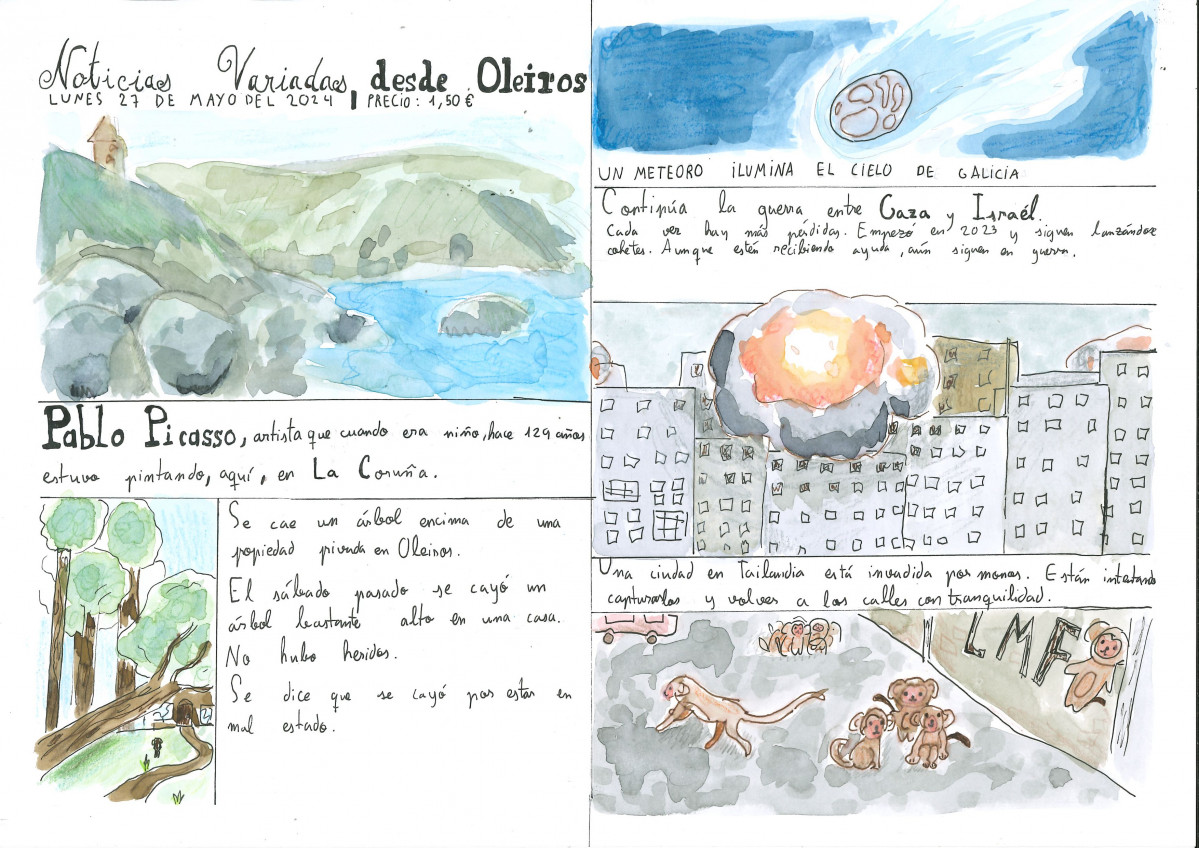 Noticias Variadas, desde Oleiros
LUNES 27 DE MAYO DEL 2024, PRECIO: 1,50 €
Pablo Picasso, artista que cuando era niño, hace 129 años
estuvo pintando, aquí, en La Coruña.
Se cae un árbol encima de una
propiedad privada en Oleiros.
El sábado pasado se cayó un
árbol bastante alto en una casa.
No hubo heridos.
Se dice que se cayó por estar en
mal estado.
UN METEORO ILUMINA EL CIELO DE GALICIA
Continúa la guerra entre Gaza y Israél.
Cada vez hay más pérdidas. Empezó en 2023 y siguen lanzándose
cohetes. Aunque estén recibiendo ayuda, aún siguen en guerra.
Una ciudad en Tailandia está invadida por monos. Están intetando
capturarlos y volver a las calles con tranquilidad.
LMF